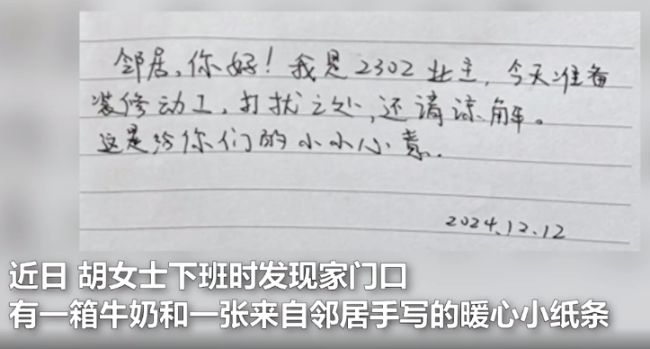 邻居,你好!我是2302业主,今天准备
装修动工,打扰之处,还请谅解。
这是给你们的小小心意.
2024.12.12
近日 胡女士下班时发现家门口
有一箱牛奶和一张来自邻居手写的暖心小纸条